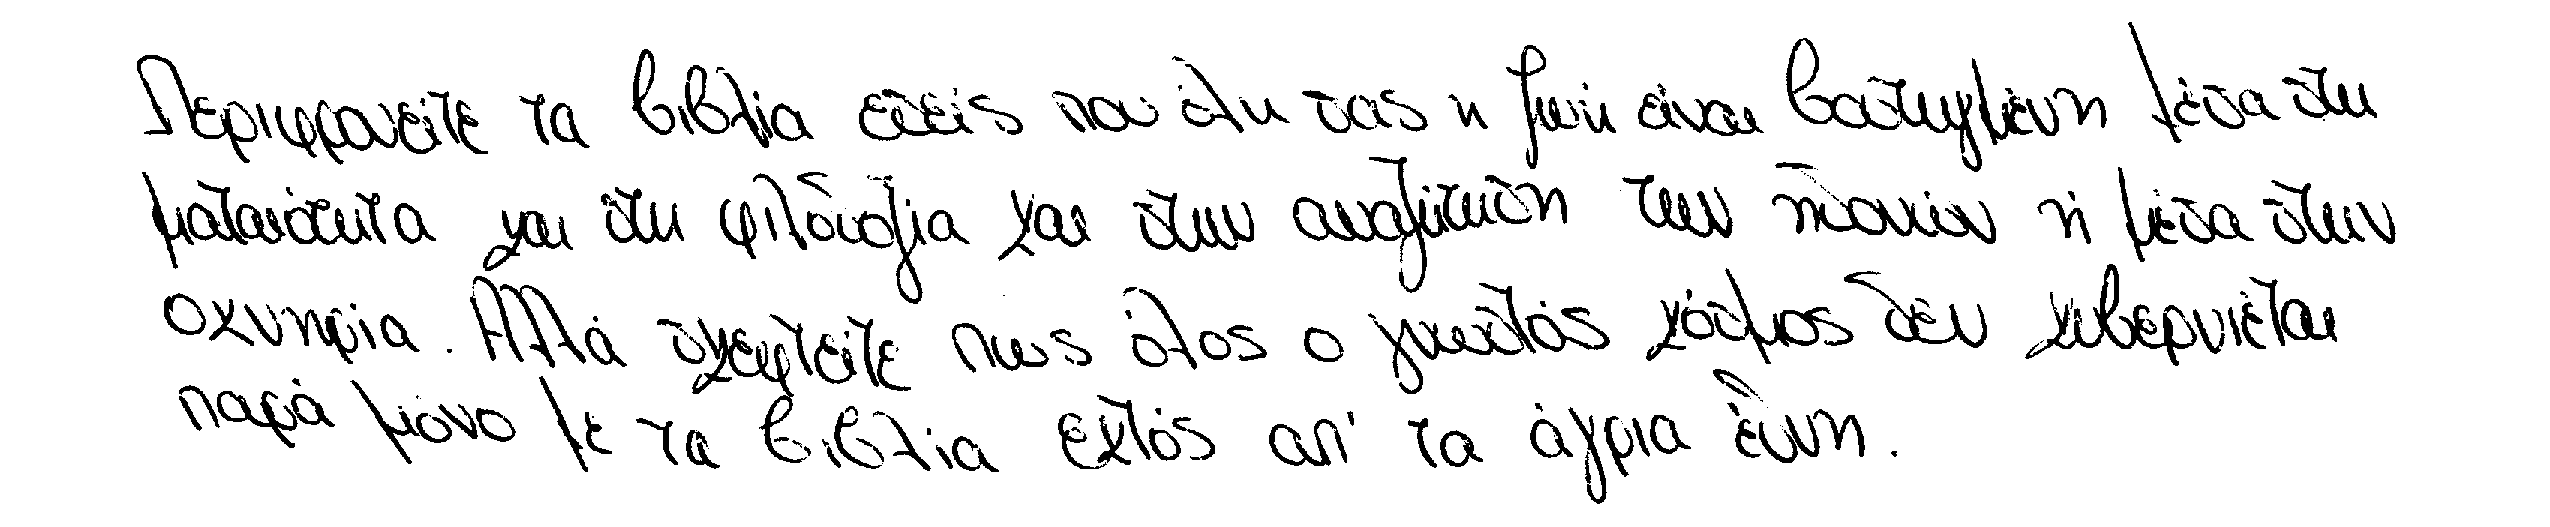 Περιφρονείτε τα βιβλία εσείς που όλη σας η ζωή είναι βασισμένη μέσα στη
ματαιότητα και στη φιλοδοξία και στην αναζήτηση των ηδονών ή μέσα στην
οκνηρία. Αλλά σκεφτείτε πως όλος ο γνωστός κόσμος δεν κυβερνιέται
παρά μόνο με τα βιβλία εκτός απ' τα άγρια έθνη.